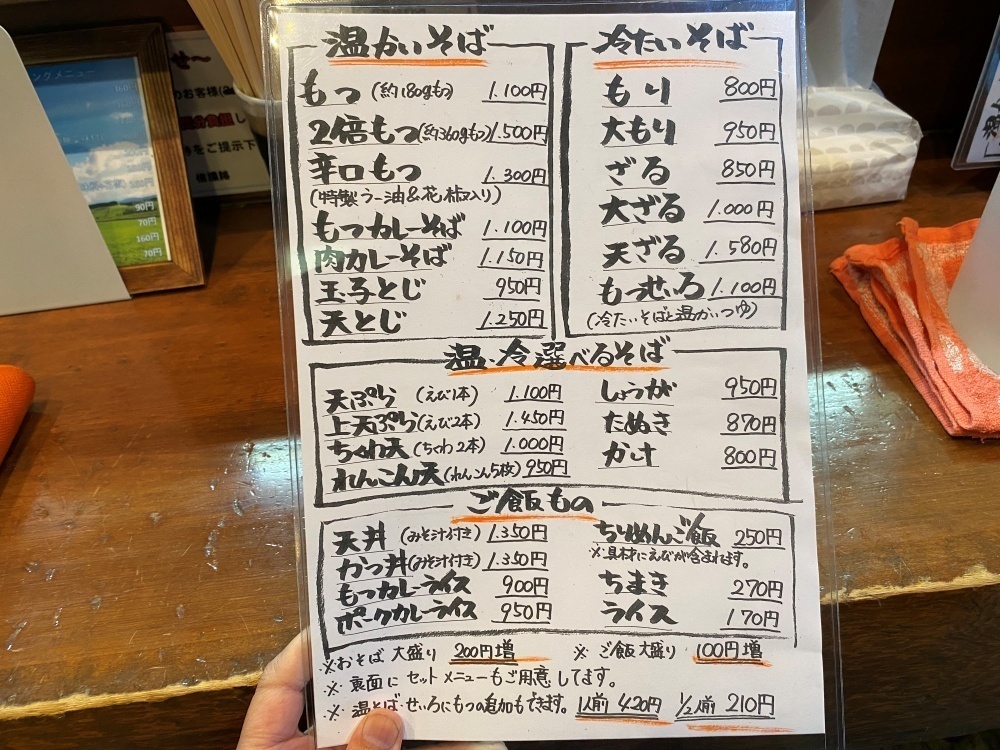 温かいそば
もつ (約180gもつ) 1.100円
2倍もつ (約360gもつ) 1.500円
辛口もつ 1.300円
(特製ラー油&花椒入り)
もつカレーそば 1.100円
肉カレーそば 1.150円
玉子とじ 950円
天とじ 1.250円
冷たいそば
もり 800円
大もり 950円
ざる 850円
大ざる 1.000円
天ざる 1.580円
もつせいろ 1.100円
(冷たいそばと温かいつゆ)
温、冷選べるそば
天ぷら (えび1本) 1.100円
上天ぷら (えび2本) 1.450円
ちくわ天 (ちくわ2本) 1.000円
れんこん天 (れんこん5枚) 950円
しょうが 950円
たぬき 870円
かけ 800円
ご飯もの
天丼 (みそ汁付き) 1.350円
かつ丼 (みそ汁付き) 1.350円
もつカレーライス 900円
ポークカレーライス 950円
ちりめんご飯 250円
※具材にえびが含まれます。
ちまき 270円
ライス 170円
※おそば 大盛り 200円増
※ ご飯大盛り 100円増
※ 裏面に セットメニューもご用意してます。
※ 温そば・せいろにもつの追加もできます。 1人前 420円 1/2人前 210円
のお客様(
をご提示下
90円
70円
160円
70円